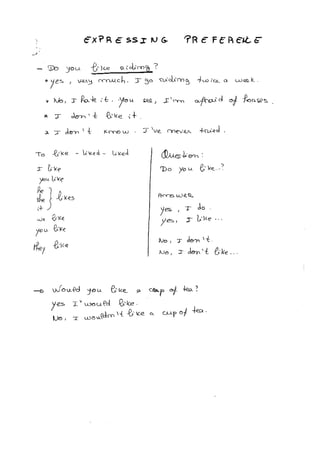 EXPRESSING PREFERENCE
- Do you like riding?
* yes, very much. I go riding twice a week.
* No, I hate it. you see, I'm afraid of horses.
* I don't like it.
* I don't know. I've never tried.
To like - liked - liked
I like
you like
he
she
it
likes
we like
you like
they like
Question:
Do you like..?
Answer
yes, I do.
yes, I like...
No, I don't.
No, I don't like...
Would you like a cup of tea?
yes I'would like.
No, I wouldn't like a cup of tea.